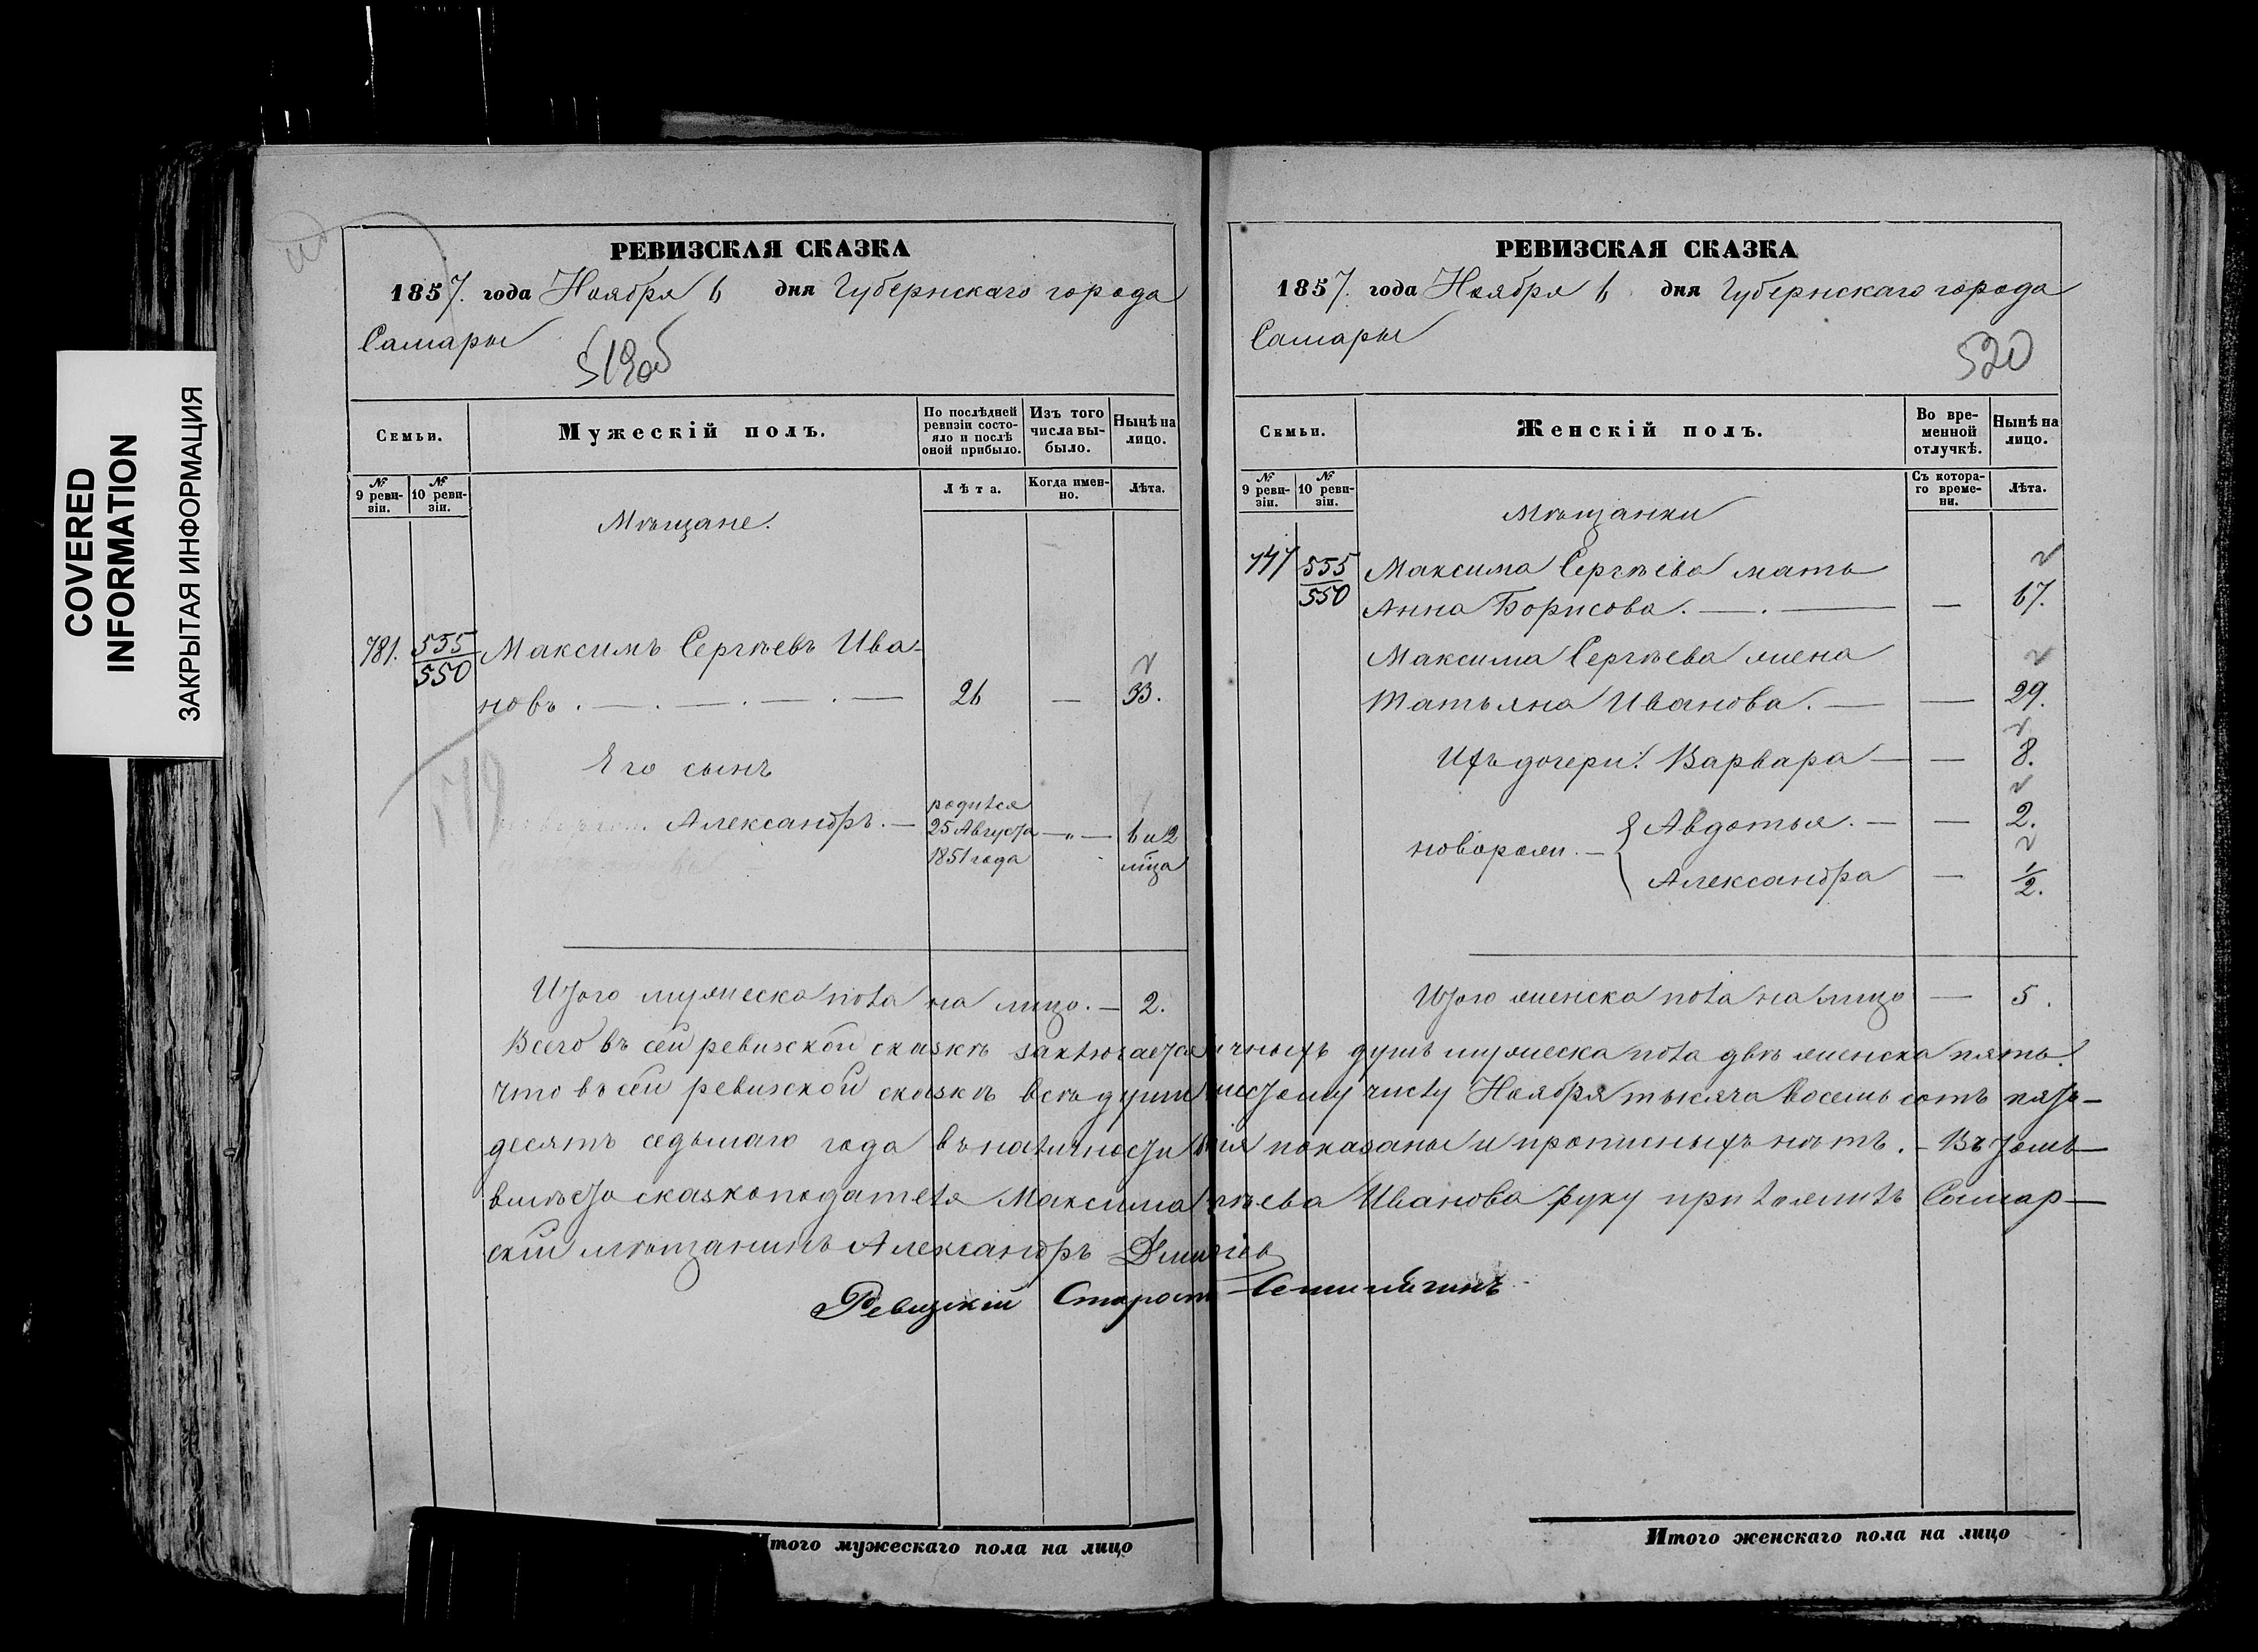 COVERED
INFORMATION
ЗАКРЫТАЯ ИНФОРМАЦИЯ
РЕВИЗСКАЯ СКАЗКА
1857. года Ноября 6 дня Губернскаго города
Самары
519об
Семьи.
Мужескій полъ.
По послѣдней ревизіи состояло и послѣ оной прибыло.
Изъ того числа выбыло.
Нынѣ на лицо.
№ 9 ревизіи.
№ 10 ревизіи.
Лѣта.
Когда именно.
Лѣта.
Мѣщане.
781. 555/550 Максимъ Сергѣевъ Ива-
новъ. 26 — 33.
Его сынъ
Александръ. — родился 25 Августа 1851 года — 6 и 2 мца
Итого мужеска пола на лицо. — 2.
РЕВИЗСКАЯ СКАЗКА
1857. года Ноября 6 дня Губернскаго города
Самары
520
Семьи.
Женскій полъ.
Во временной отлучкѣ.
Нынѣ на лицо.
№ 9 ревизіи.
№ 10 ревизіи.
Съ котораго времени.
Лѣта.
Мѣщанки
747 555/550 Максима Сергѣева мать
Анна Борисова. — — 67.
Максима Сергѣева жена
Татьяна Иванова. — — 29.
Ихъ дочери: Варвара — — 8.
новорожд. — Авдотья. — — 2.
Александра — 1/2.
Итого женска пола на лицо — 5.
Всего въ сей ревизской сказкѣ заключается личныхъ душъ мужеска пола двѣ женска пять.
Что въ сей ревизской сказкѣ всѣ души шестому числу Ноября тысяча восемь сотъ пять-
десятъ седьмаго года въ наличности показаны и прописныхъ нѣтъ. — Въ томъ
вмѣсто сказкоподателя Максима Сергѣева Иванова руку приложилъ Самар-
скій мѣщанинъ Александръ
Ревизскій Староста
Итого мужескаго пола на лицо
Итого женскаго пола на лицо